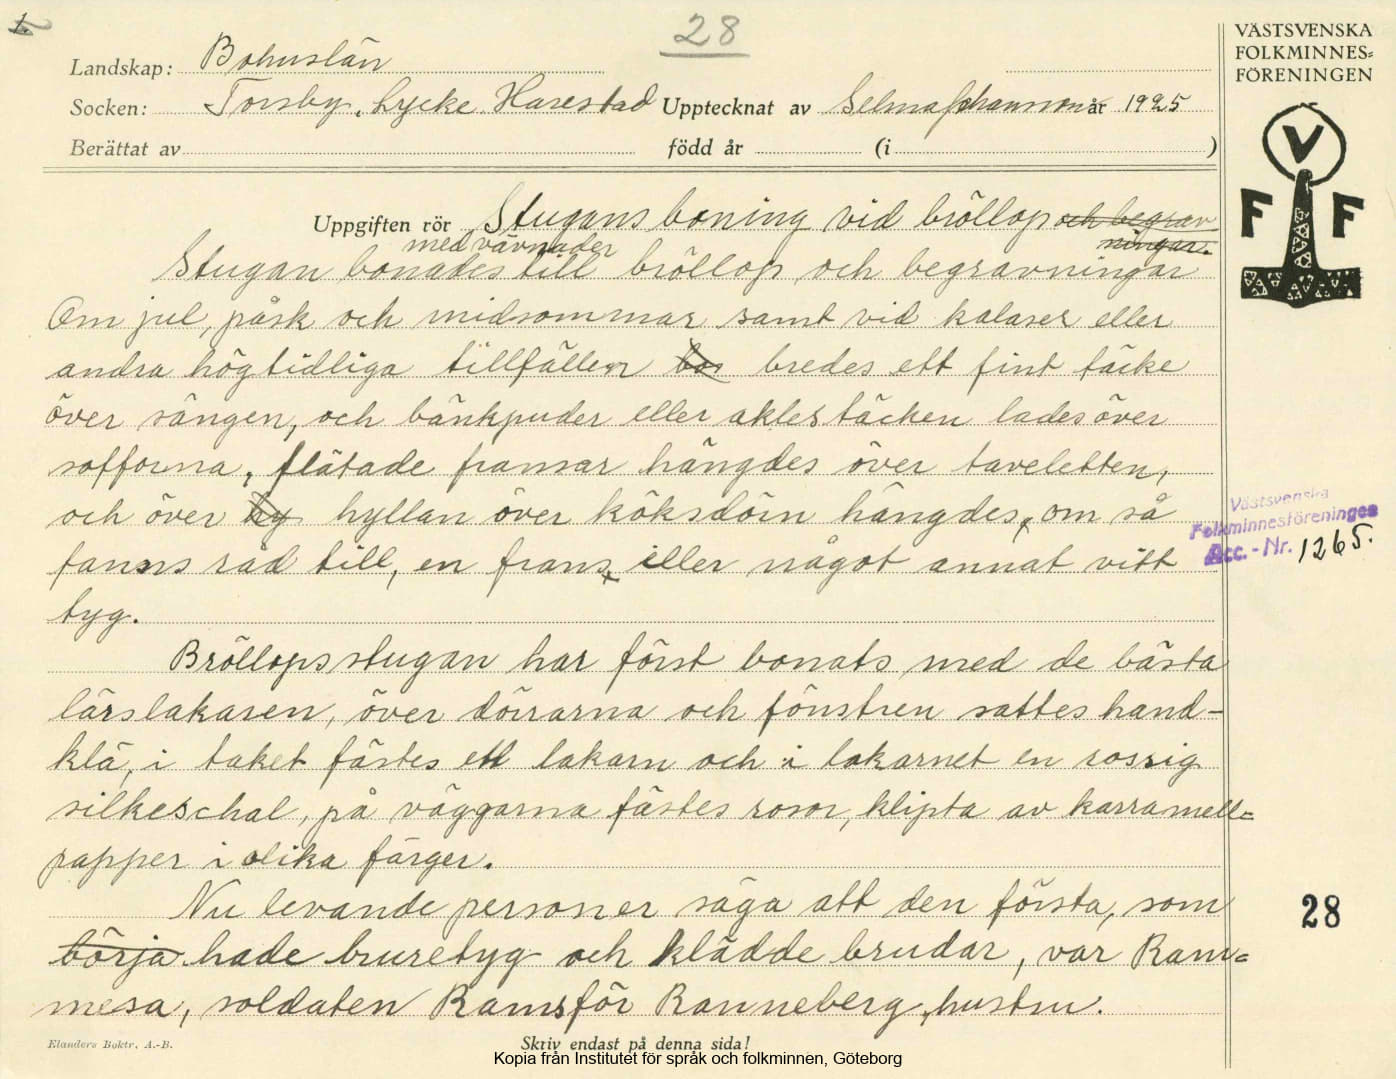 28
VÄSTSVENSKA
FOLKMINNES=
FÖRENINGEN
Landskap: Bohuslän
Socken: Torsby, Lycke Harestad Upptecknat av Selma Johansson år 1925
Berättat av född år (i )
V
F F
Uppgiften rör Stugans boning vid bröllop och begrav
ningar.
med vävnader
Stugan bonades till bröllop och begravningar
Om jul, påsk och midsommar samt vid kalaser eller
andra högtidliga tillfällen bo bredes ett fint täcke
över sängen, och bänkpuder eller aklestäcken lades över
sofforna, flätade fransar hängdes över taveletten,
och över hy hyllan över köksdörn hängdes, om så
fanns råd till, en frans eller något annat vitt
tyg.
Västsvenska
Folkminnesföreningen
Acc.-Nr. 1265.
Bröllopsstugan har först bonats med de bästa
lärslakasen, över dörrarna och fönstren sattes hand-
klä, i taket fästes ett lakarn och i lakarnet en rossig
silkeschal, på väggarna fästes rosor, klipta av karramell=
papper i olika färger.
Nu levande personer säga att den första, som
börja hade bruretyg och klädde brudar, var Ram=
mesa, soldaten Rams för Ranneberg, hustru.
28
Elanders Boktr. A.-B.
Skriv endast på denna sida!
Kopia från Institutet för språk och folkminnen, Göteborg